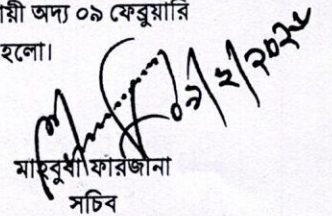 য়ী অদ্য ০৯ ফেব্রুয়ারি
হলো।
০৯/২/২০২৫
মাহবুবা ফারজানা
সচিব